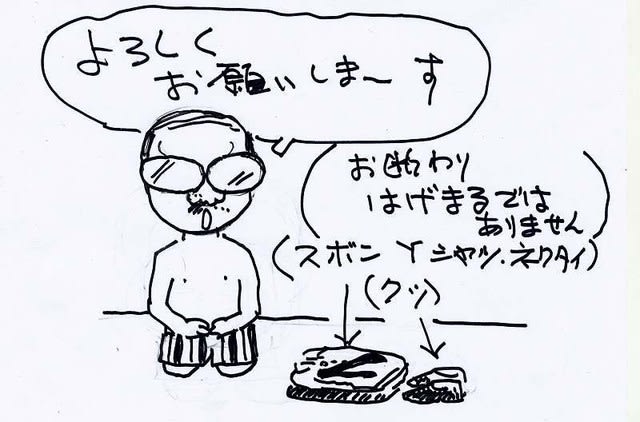 よろしく
お願いしま〜す
お断わり
はげまるでは
ありません
(スボン Yシャツ.ネクタイ)
(クツ)